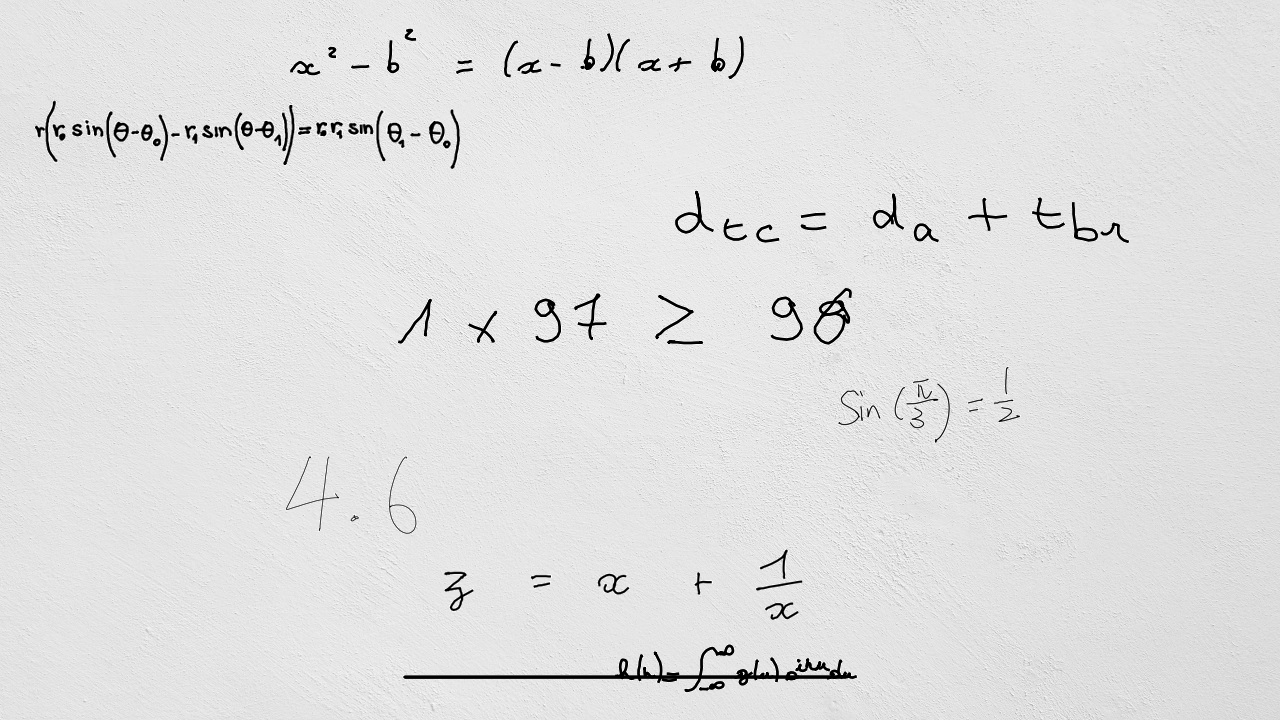 x² - b² = (x - b)(x + b)
r(r₀ sin(θ-θ₀) - r₁ sin(θ-θ₁)) = r₀ r₁ sin(θ₁ - θ₀)
d_{tc} = d_a + t_{br}
1 x 97 ≥ 98
sin(π/3) = 1/2
4.6
z = x + 1/x